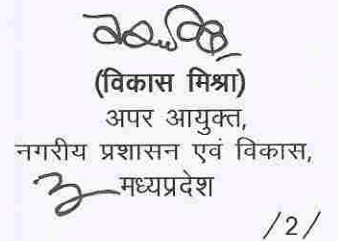 (विकास मिश्रा)
अपर आयुक्त,
नगरीय प्रशासन एवं विकास,
मध्यप्रदेश
/2/